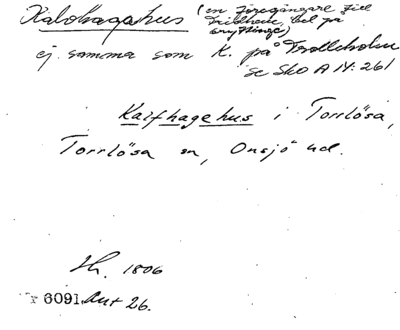 Kalvhagahus (en föregångare till
Trillhem, bel på
ej samma som K. på Trolleholm
se Sko A 14:261
Kalfhagehus i Torrlösa,
Torrlösa sn, Onsjö hd.
1806
6091 Ant 26.